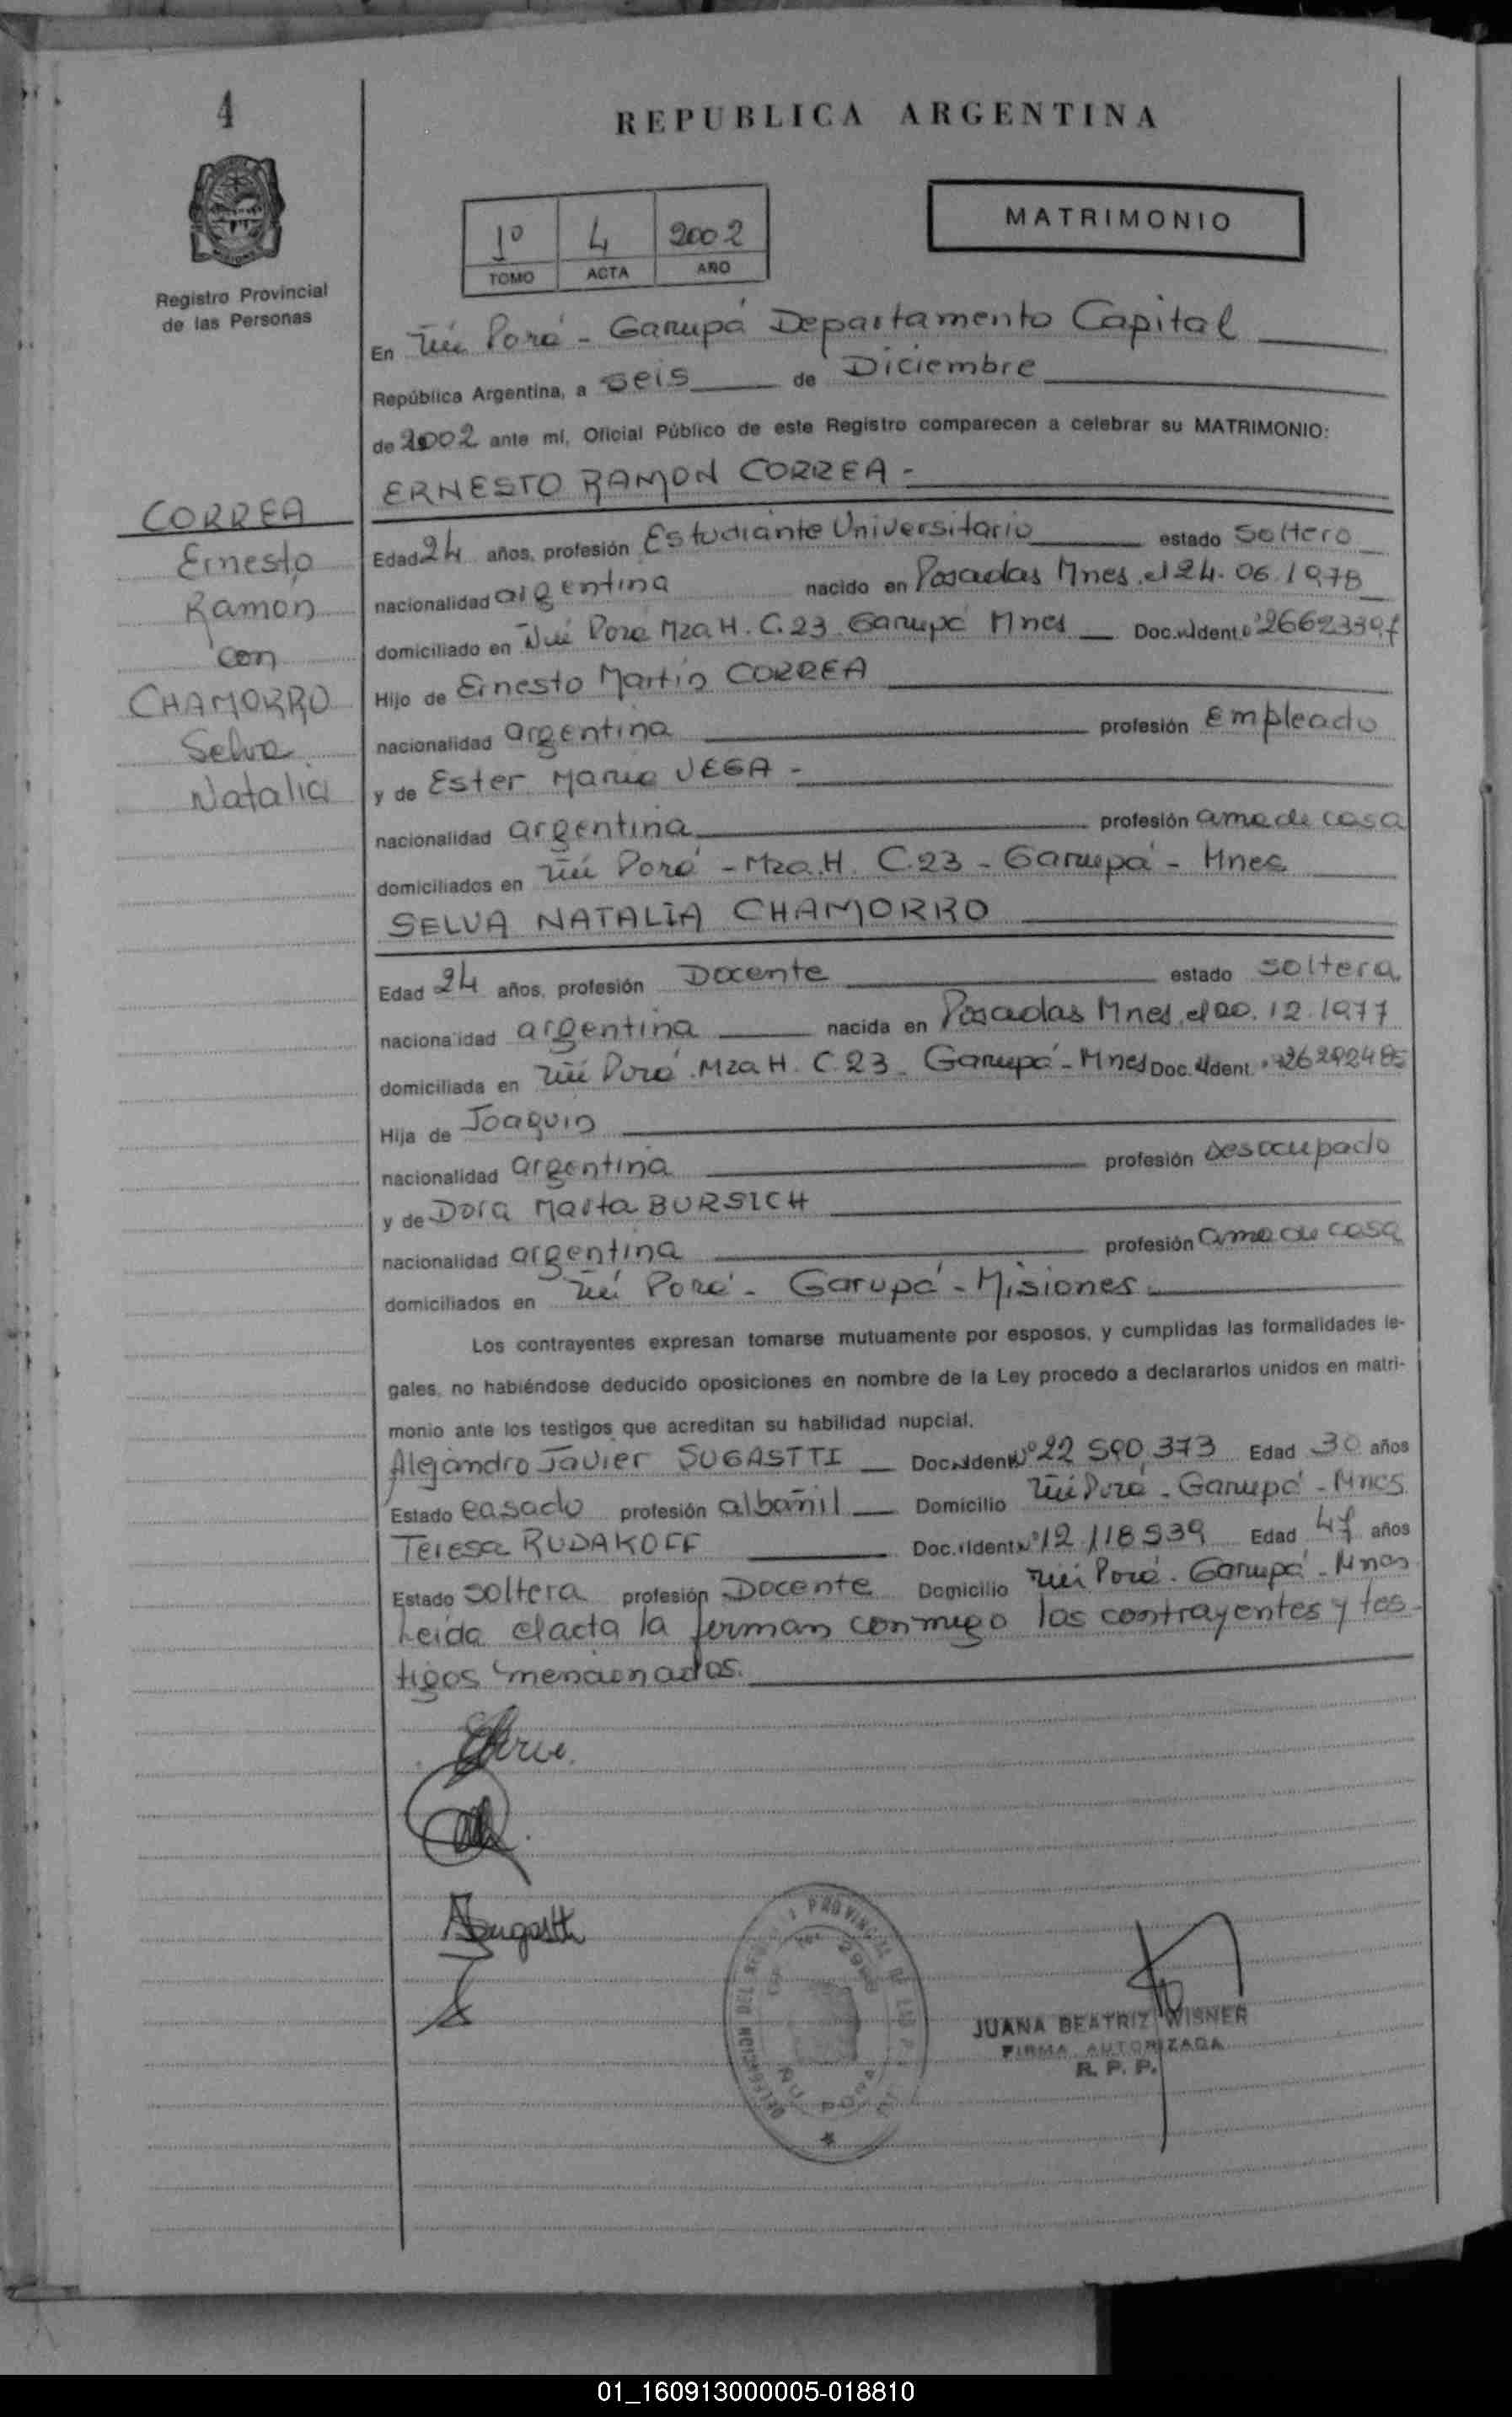 4
REPUBLICA ARGENTINA
MATRIMONIO
1º 4 2002
TOMO ACTA AÑO
Registro Provincial
de las Personas
En Ñu Porá - Garupá Departamento Capital
República Argentina, a seis de Diciembre
de 2002 ante mí, Oficial Público de este Registro comparecen a celebrar su MATRIMONIO:
ERNESTO RAMON CORREA -
CORREA
Ernesto
Ramon
con
CHAMORRO
Selva
Natalia
Edad 24 años, profesión Estudiante Universitario estado Soltero
nacionalidad argentina nacido en Posadas Mnes. el 24.06.1978
domiciliado en Ñu Porá Mza H. C.23 Garupá Mnes Doc. Ident.
Hijo de Ernesto Martín CORREA
nacionalidad argentina profesión Empleado
y de Ester María VEGA -
nacionalidad argentina profesión ama de casa
domiciliados en Ñu Porá - Mza.H. C.23 - Garupá - Mnes
SELVA NATALIA CHAMORRO
Edad 24 años, profesión Docente estado soltera
nacionalidad argentina nacida en Posadas Mnes. el 20.12.1977
domiciliada en Ñu Porá Mza H. C.23 - Garupá - Mnes Doc. Ident.
Hija de Joaquin
nacionalidad argentina profesión desocupado
y de Dora Marta BURSICH
nacionalidad argentina profesión ama de casa
domiciliados en Ñu Porá - Garupá - Misiones
Los contrayentes expresan tomarse mutuamente por esposos, y cumplidas las formalidades le-
gales, no habiéndose deducido oposiciones en nombre de la Ley procedo a declararlos unidos en matri-
monio ante los testigos que acreditan su habilidad nupcial.
Alejandro Javier SUGASTTI Doc. Ident Nº 22 590.373 Edad 30 años
Estado casado profesión albañil Domicilio Ñu Porá - Garupá - Mnes
Teresa RUDAKOFF Doc. Ident Nº 12.118539 Edad 47 años
Estado soltera profesión Docente Domicilio Ñu Porá - Garupá - Mnes
Leída el acta la firman conmigo los contrayentes y tes-
tigos mencionados.
JUANA BEATRIZ WISNER
FIRMA AUTORIZADA
R. P. P.
01_160913000005-018810